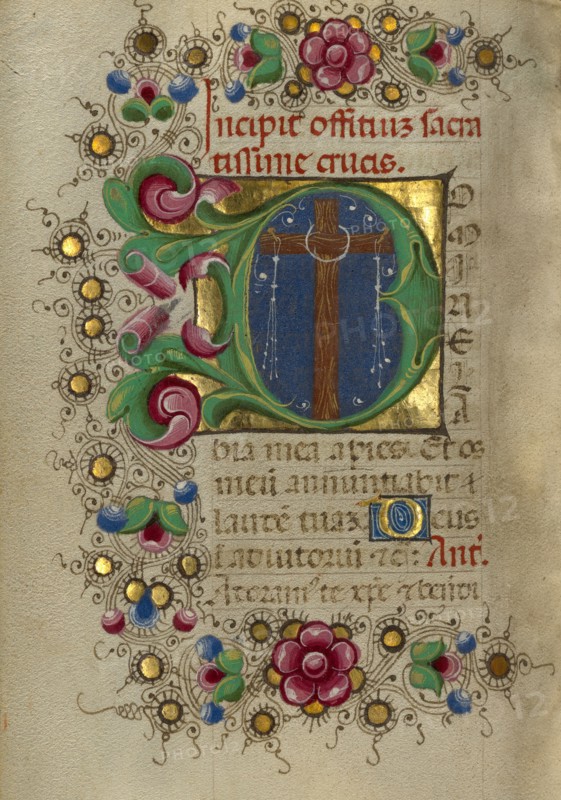 Incipit offitiuz sacra
tissime crucis.
D
O
M
I
N
E
L
A
bia mea apies. Et os
meū annuntiabit
laudē tuaz. Deus
ī adiutoriū ⁊c: Ant.
Adoram⁹ te xp̄e ⁊ bn̄di
PHOTO12